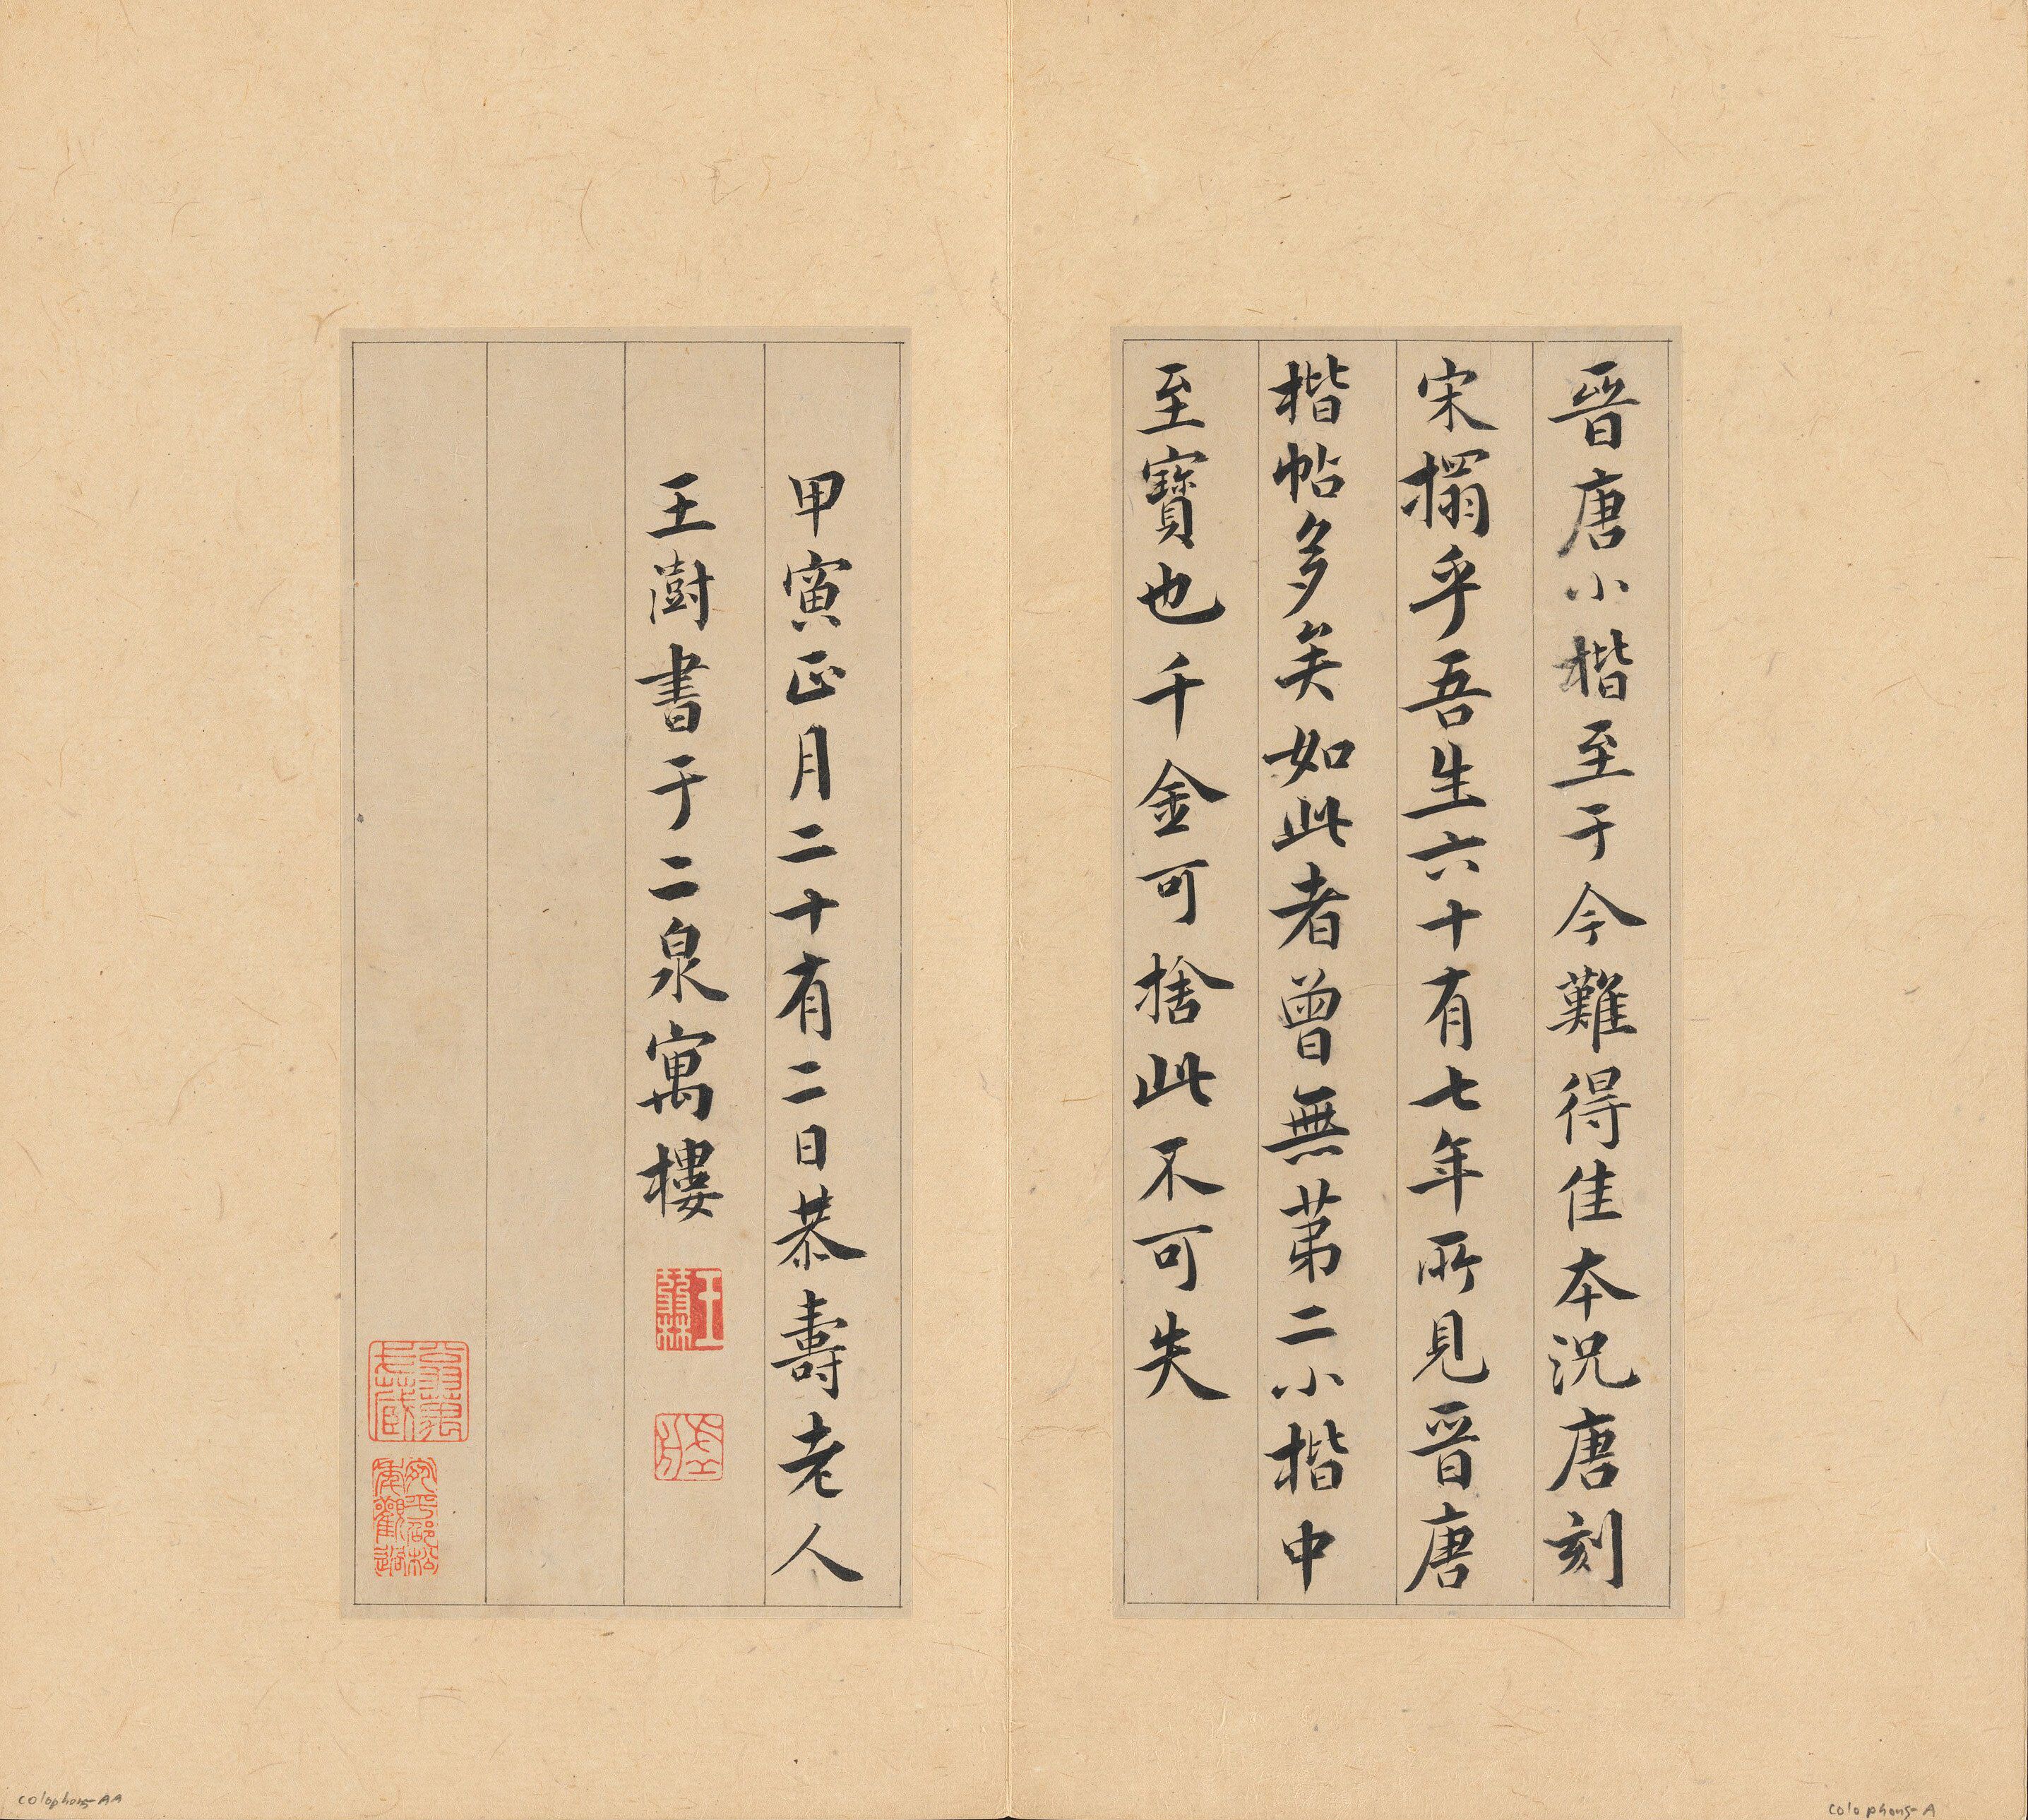 晉唐小楷至于今難得佳本況唐刻
宋搨乎吾生六十有七年所見晉唐
楷帖多矣如此者曾無苐二小楷中
至寶也千金可捨此不可失
甲寅正月二十有二日恭壽老人
王澍書于二泉寓樓
王蒻林
虛舟
翁萬戈藏
宛平邵松年觀
colophons-AA
colophons-A